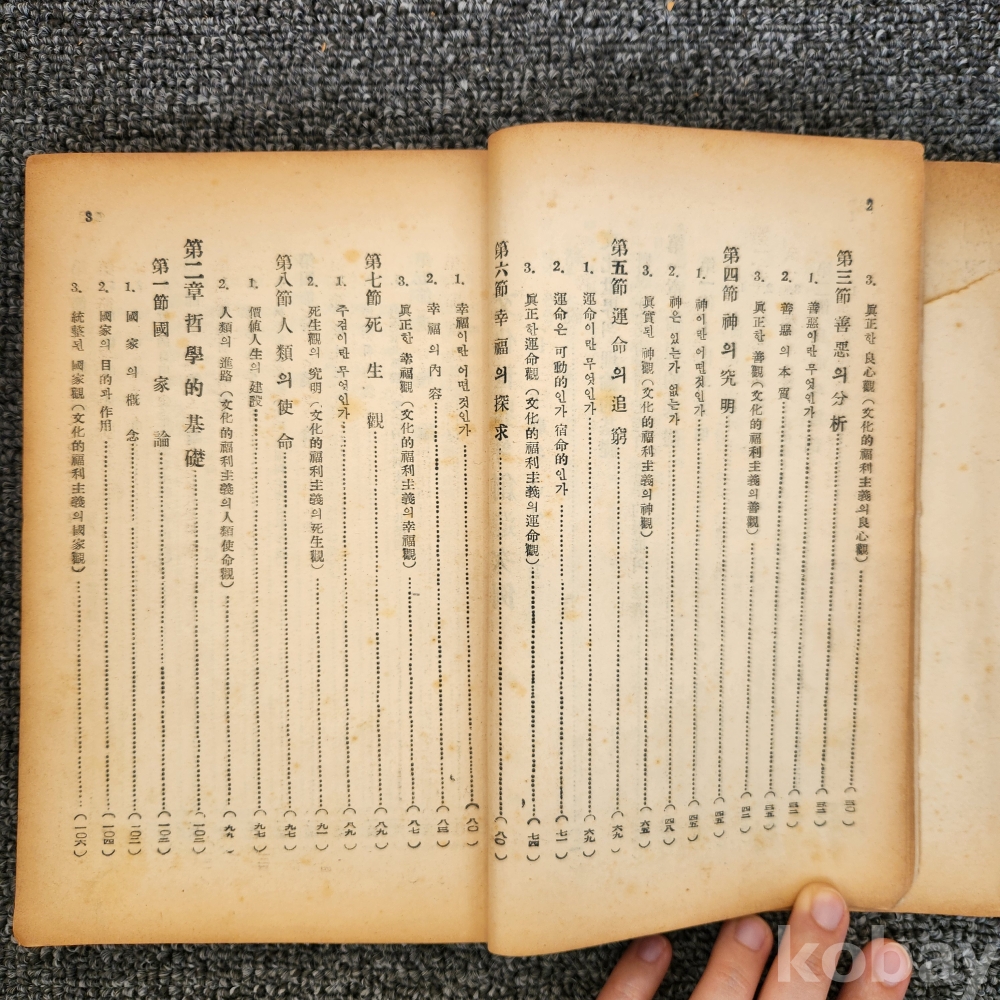 2
3. 眞正한 良心觀(文化的福利主義의良心觀)……(三〇)
第三節 善惡의分析……(三二)
1. 善惡이란 무엇인가……(三二)
2. 善惡의 本質……(三五)
3. 眞正한 善觀(文化的福利主義의善觀)……(四二)
第四節 神의究明……(四五)
1. 神이란 어떤것인가……(四五)
2. 神은 있는가 없는가……(四八)
3. 眞實된 神觀(文化的福利主義의神觀)……(六五)
第五節 運命의追窮……(六九)
1. 運命이란 무엇인가……(六九)
2. 運命은 可動的인가 宿命的인가……(七一)
3. 眞正한運命觀(文化的福利主義의運命觀)……(七四)
第六節 幸福의探求……(八〇)
3
1. 幸福이란 어떤것인가……(八〇)
2. 幸福의 內容……(八三)
3. 眞正한 幸福觀(文化的福利主義의幸福觀)……(八七)
第七節 死生觀……(八九)
1. 주검이란 무엇인가……(八九)
2. 死生觀의 究明(文化的福利主義의死生觀)……(九一)
第八節 人類의使命……(九七)
1. 價値人生의 建設……(九七)
2. 人類의 進路(文化的福利主義의人類使命觀)……(九九)
第二章 哲學的基礎……(一〇二)
第一節 國家論……(一〇二)
1. 國家의 槪念……(一〇二)
2. 國家의 目的과 作用……(一〇四)
3. 統整된 國家觀(文化的福利主義의國家觀)……(一〇六)
kobay